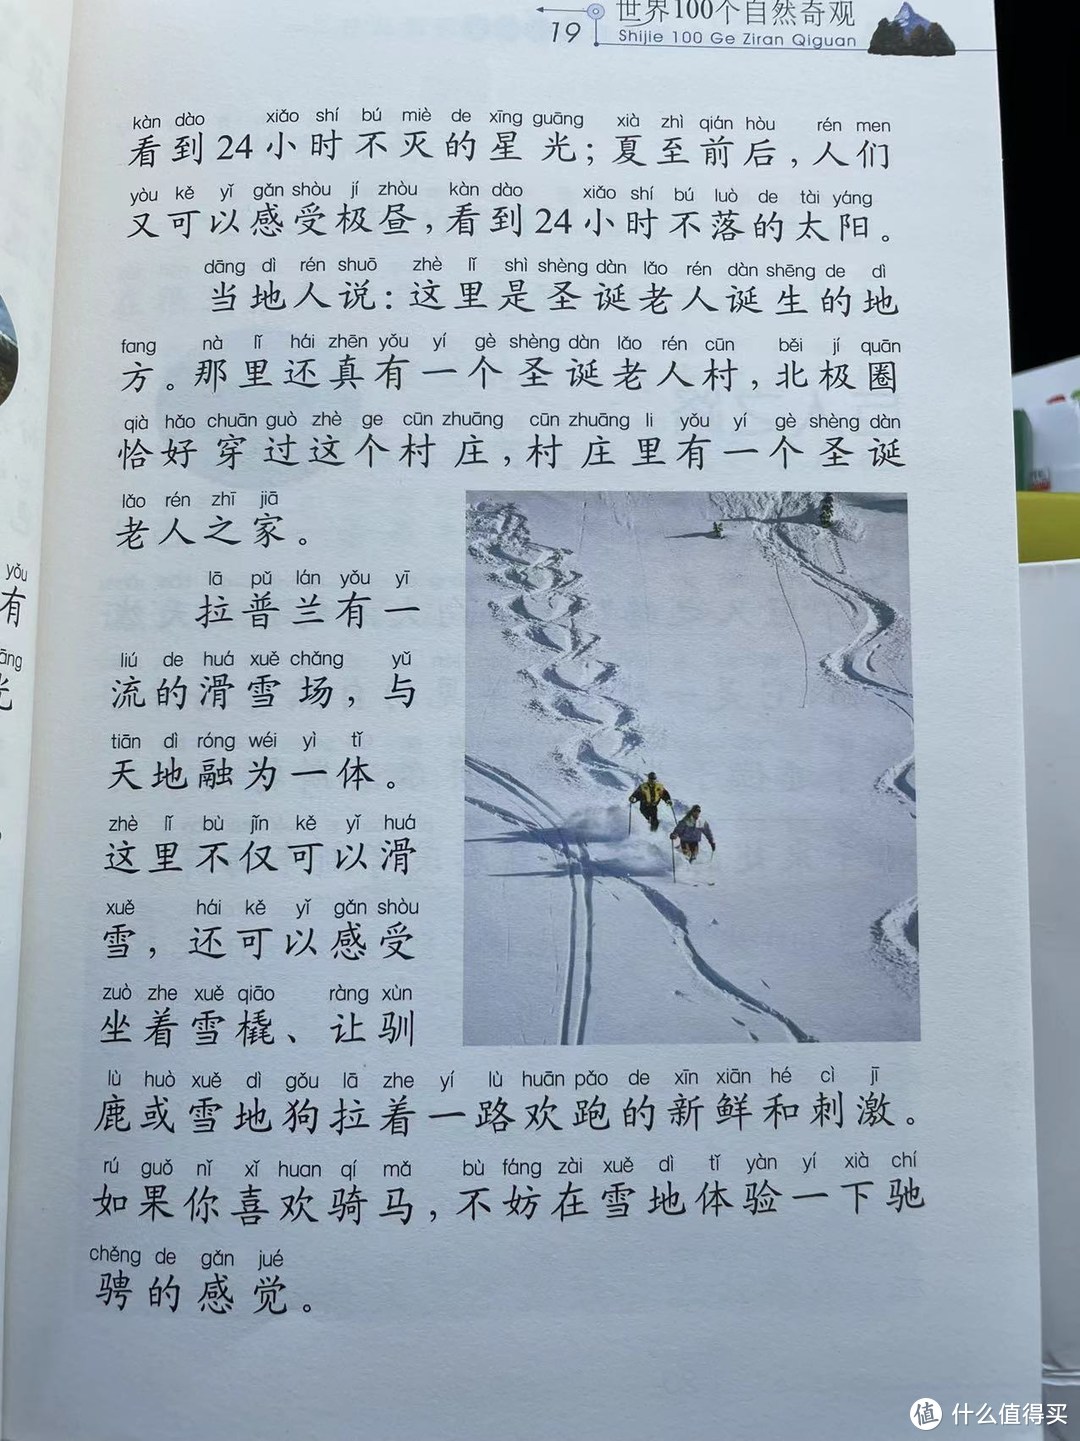 19
世界100个自然奇观
Shijie 100 Ge Ziran Qiguan
kàn dào xiǎo shí bú miè de xīng guāng xià zhì qián hòu rén men
看到24小时不灭的星光；夏至前后，人们
yòu kě yǐ gǎn shòu jí zhòu kàn dào xiǎo shí bú luò de tài yáng
又可以感受极昼，看到24小时不落的太阳。
dāng dì rén shuō zhè lǐ shì shèng dàn lǎo rén dàn shēng de dì
当地人说：这里是圣诞老人诞生的地
fang nà lǐ hái zhēn yǒu yí gè shèng dàn lǎo rén cūn běi jí quān
方。那里还真有一个圣诞老人村，北极圈
qià hǎo chuān guò zhè ge cūn zhuāng cūn zhuāng li yǒu yí gè shèng dàn
恰好穿过这个村庄，村庄里有一个圣诞
lǎo rén zhī jiā
老人之家。
lā pǔ lán yǒu yī
拉普兰有一
liú de huá xuě chǎng yǔ
流的滑雪场，与
tiān dì róng wéi yì tǐ
天地融为一体。
zhè lǐ bù jǐn kě yǐ huá
这里不仅可以滑
xuě hái kě yǐ gǎn shòu
雪，还可以感受
zuò zhe xuě qiāo ràng xùn
坐着雪橇、让驯
lù huò xuě dì gǒu lā zhe yí lù huān pǎo de xīn xiān hé cì jī
鹿或雪地狗拉着一路欢跑的新鲜和刺激。
rú guǒ nǐ xǐ huan qí mǎ bù fáng zài xuě dì tǐ yàn yí xià chí
如果你喜欢骑马，不妨在雪地体验一下驰
chěng de gǎn jué
骋的感觉。
yǒu
有
值 什么值得买